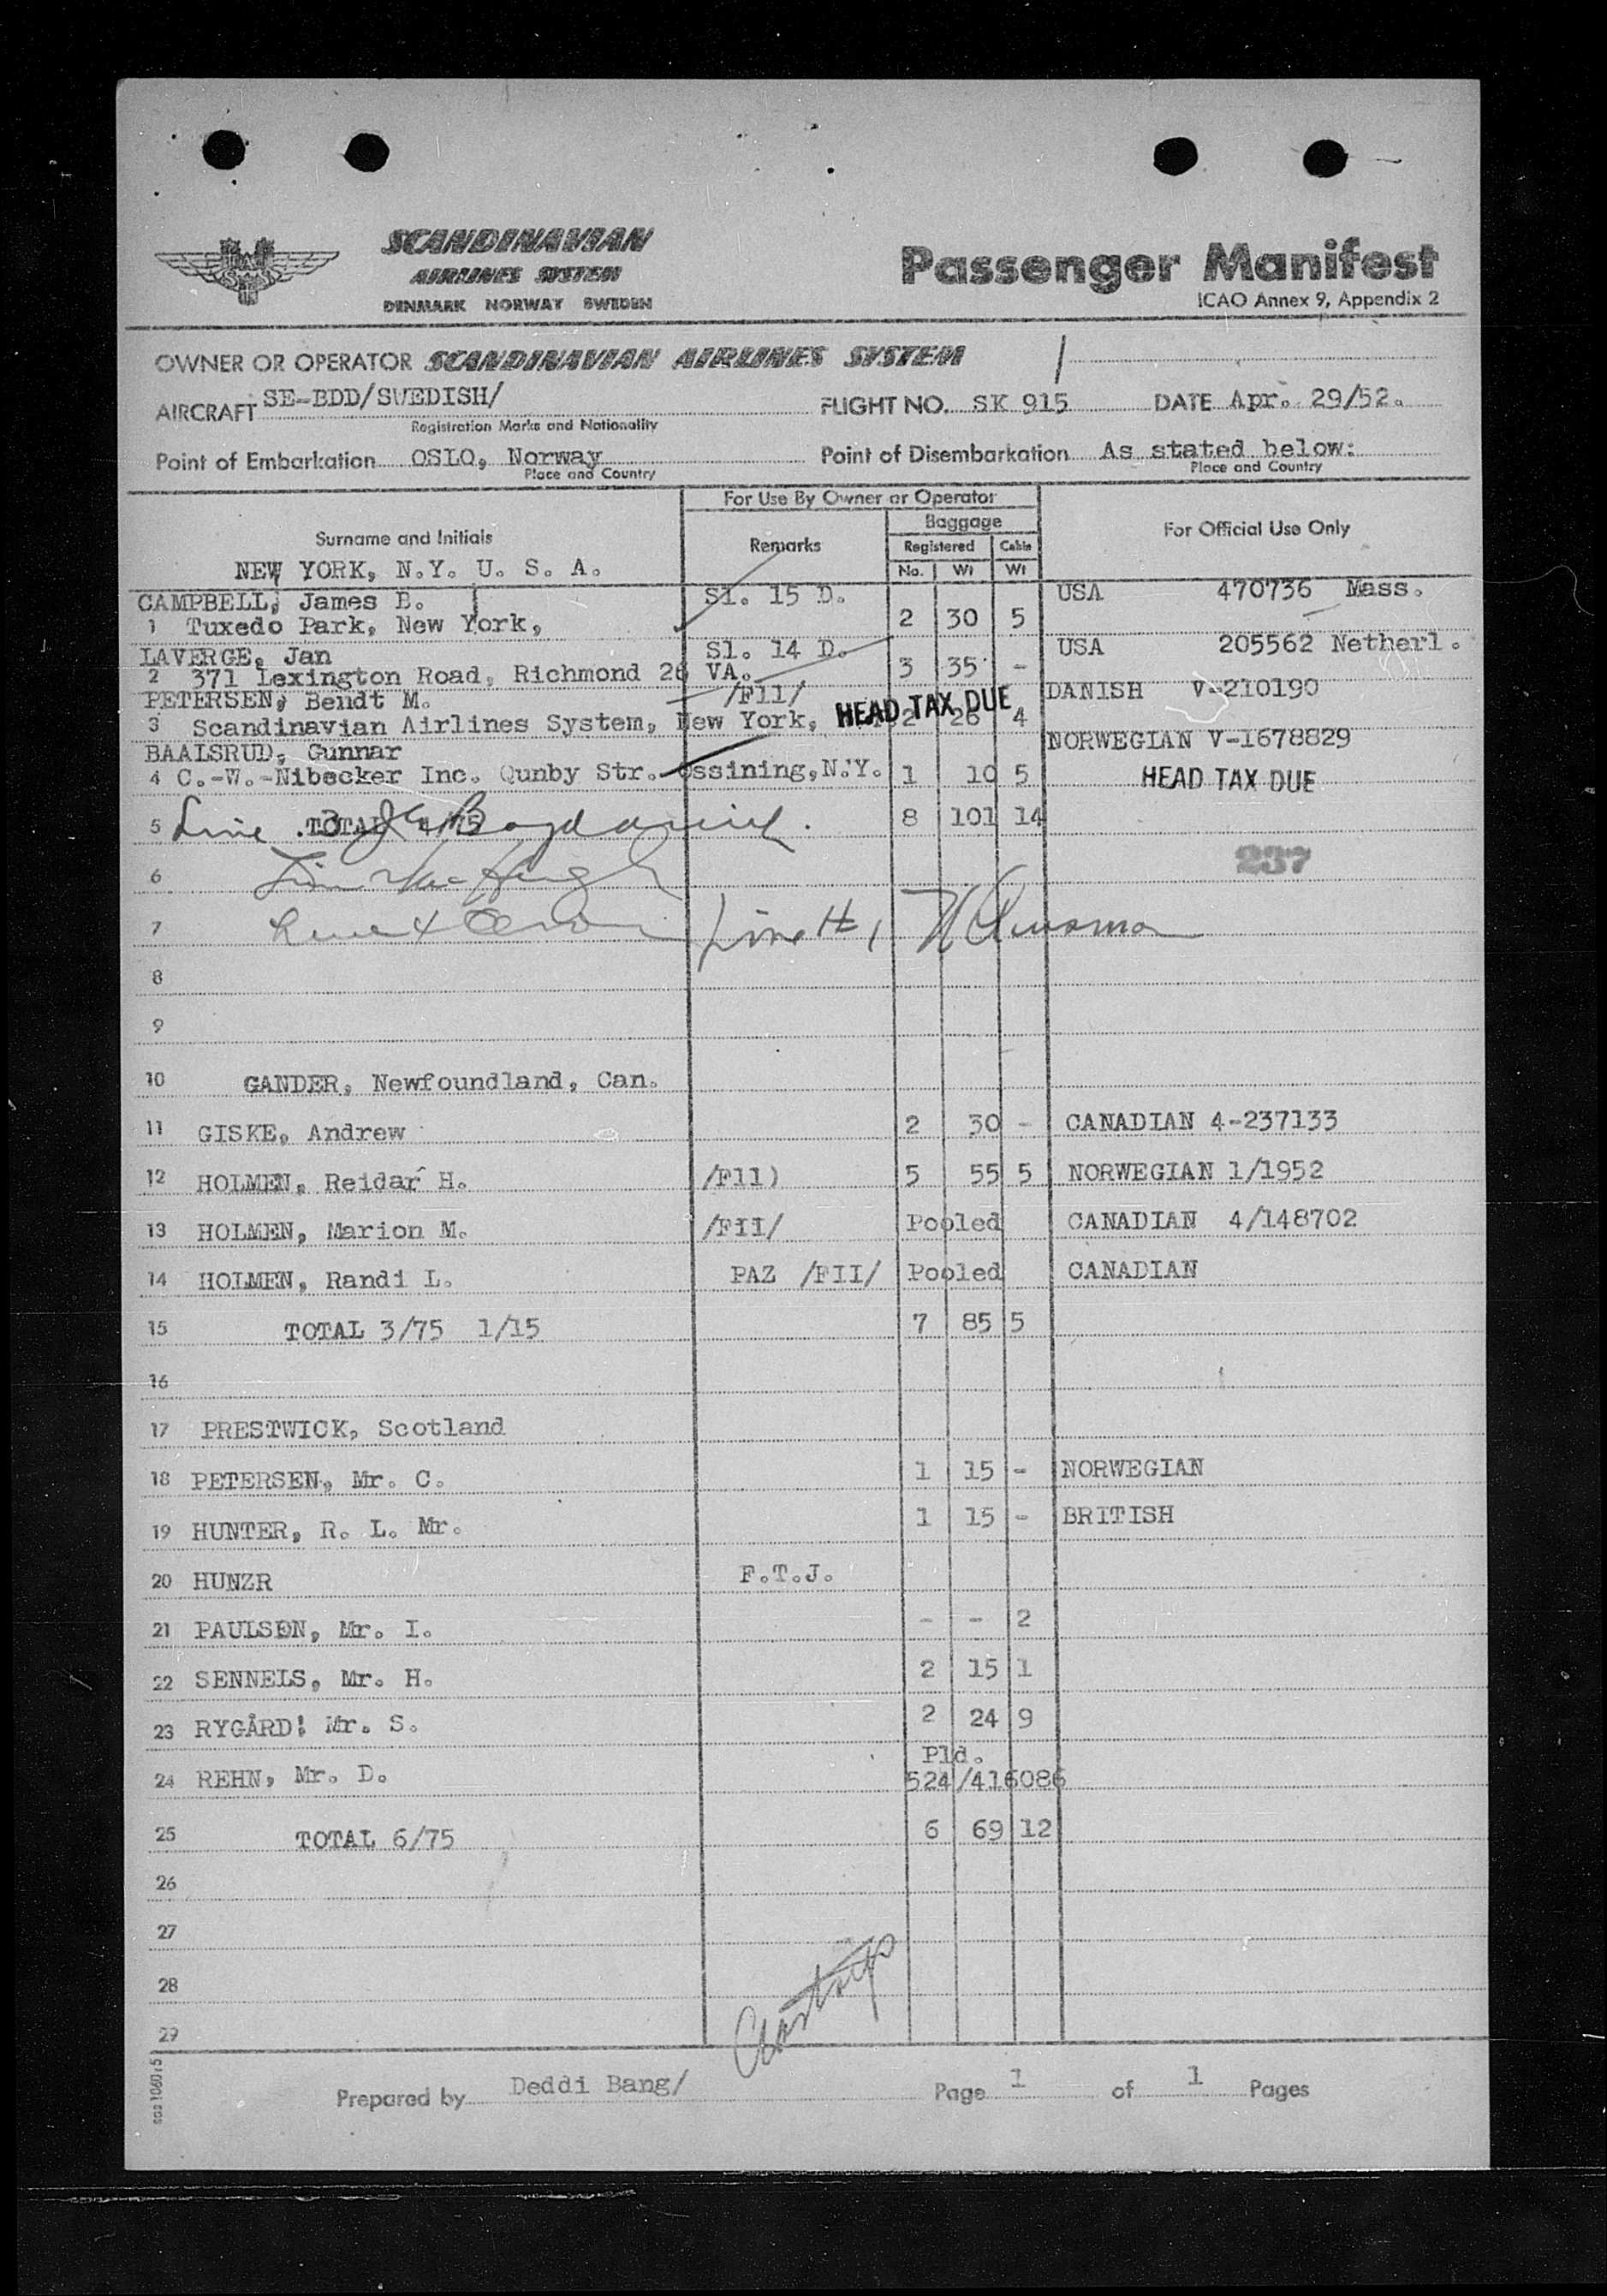 SCANDINAVIAN
AIRLINES SYSTEM
DENMARK NORWAY SWEDEN
SAS
Passenger Manifest
ICAO Annex 9, Appendix 2
OWNER OR OPERATOR SCANDINAVIAN AIRLINES SYSTEM
AIRCRAFT SE-BDD/SWEDISH/ FLIGHT NO. SK 915 DATE Apr. 29/52.
Registration Marks and Nationality
Point of Embarkation OSLO, Norway Point of Disembarkation As stated below:
Place and Country Place and Country
For Use By Owner or Operator
Surname and Initials Remarks Baggage For Official Use Only
Registered Cabin
NEW YORK, N.Y. U. S. A. No. Wt Wt
CAMPBELL, James B. Sl. 15 D. USA 470736 Mass.
1 Tuxedo Park, New York, 2 30 5
LAVERGE, Jan Sl. 14 D. USA 205562 Netherl.
2 371 Lexington Road, Richmond 26 VA. 3 35 -
PETERSEN, Bendt M. /F11/ DANISH V-210190
3 Scandinavian Airlines System, New York, HEAD TAX DUE 2 26 4
BAALSRUD, Gunnar NORWEGIAN V-1678829
4 C.-W.-Nibecker Inc. Qunby Str. Ossining, N.Y. 1 10 5 HEAD TAX DUE
5 Line TOTAL 4/75 8 101 14
6 237
7 Line # 1
8
9
10 GANDER, Newfoundland, Can.
11 GISKE, Andrew 2 30 - CANADIAN 4-237133
12 HOLMEN, Reidar H. /F11) 5 55 5 NORWEGIAN 1/1952
13 HOLMEN, Marion M. /FII/ Pooled CANADIAN 4/148702
14 HOLMEN, Randi L. PAZ /FII/ Pooled CANADIAN
15 TOTAL 3/75 1/15 7 85 5
16
17 PRESTWICK, Scotland
18 PETERSEN, Mr. C. 1 15 - NORWEGIAN
19 HUNTER, R. L. Mr. 1 15 - BRITISH
20 HUNZR F.T.J.
21 PAULSEN, Mr. I. - - 2
22 SENNELS, Mr. H. 2 15 1
23 RYGÅRD! Mr. S. 2 24 9
Pld.
24 REHN, Mr. D. 524/416086
25 TOTAL 6/75 6 69 12
26
27
28
29
Prepared by Deddi Bang/ Page 1 of 1 Pages